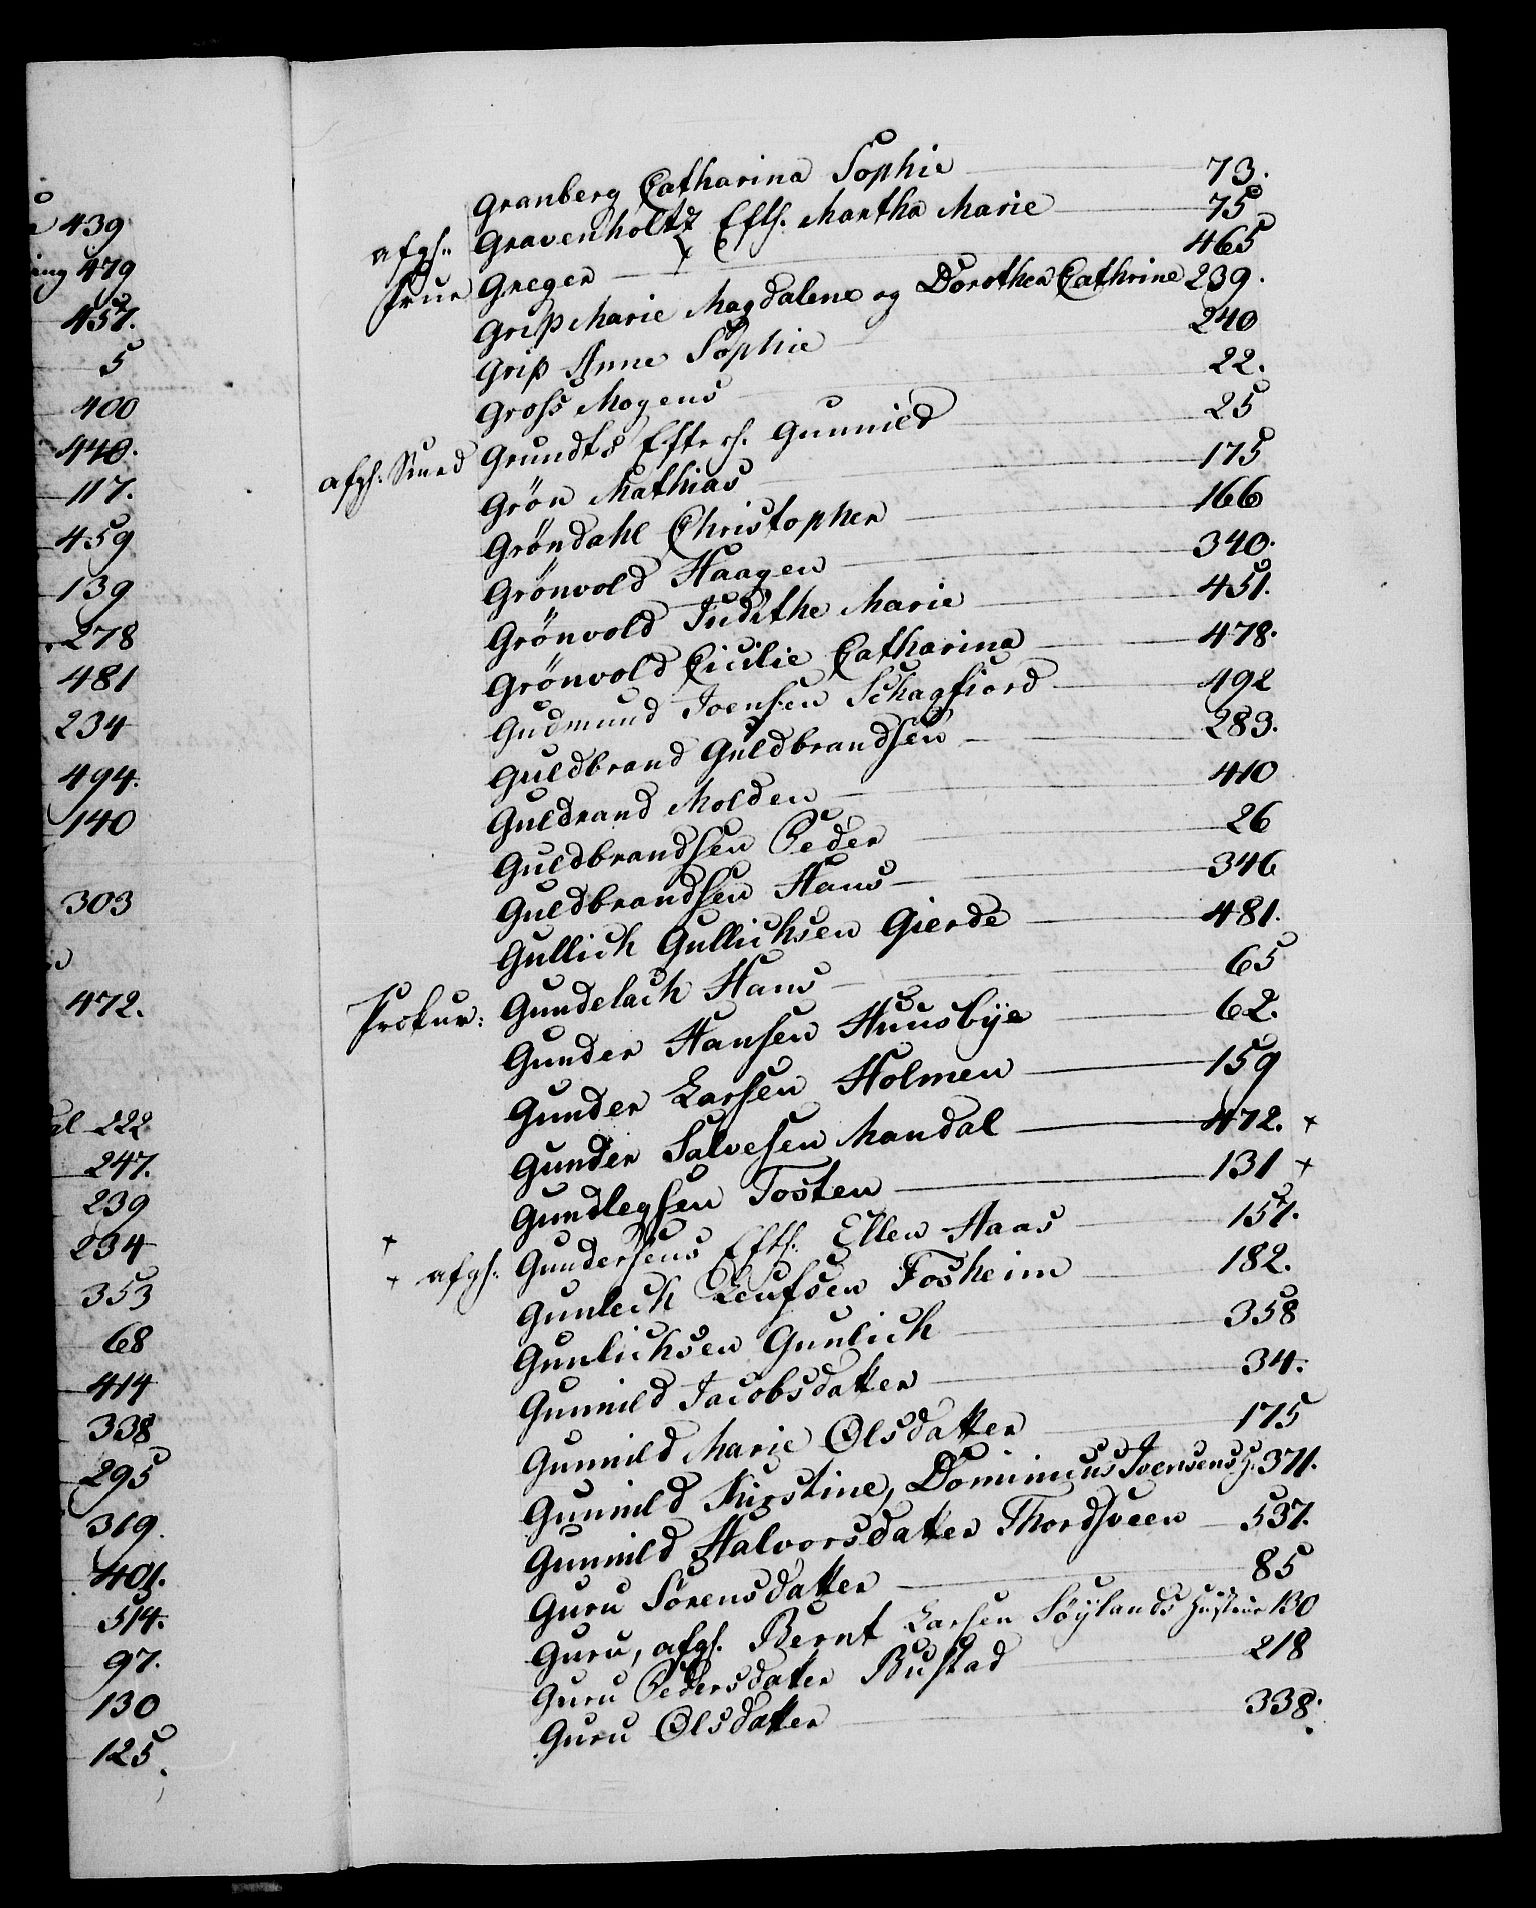 439
ing 479
457.
5
400
440.
117.
459
139
278
481
234
494.
140
303
472.
222
247.
239
234
353
68
414
338
295
319.
401.
514.
97.
130
125.
Granberg Catharina Sophie 73.
afgs: Gravenholtz Eftl. Martha Marie 75
Frue Greger 465
Griß Marie Magdalene og Dorothea Cathrine 239.
Griß Anne Sophie 240
Gross Mogens 22.
afgs: Knud Grundts Efterl. Gunnild 25
Grön Mathias 175
Gröndahl Christopher 166
Grönvold Haagen 340.
Grönvold Judithe Marie 451.
Grönvold Cicilie Catharina 478.
Gudmund Joensen Schagfiord 492
Guldbrand Guldbrandsen 283.
Guldrand Molden 410
Guldbrandsen Peder 26
Guldbrandsen Hans 346
Gullich Gullichsen Gierde 481.
Prokur: Gundelach Hans 65
Gunder Hansen Huusbÿe 62.
Gunder Larsen Holmen 159
Gunder Salvesen Mandal 472. +
+ Gundlegsen Tosten 131 +
+ afgs: Gundersens Eftl. Ellen Haas 157.
Gunlech Leufsen Fosheim 182.
Gunlichsen Gunlich 358
Gunnild Jacobsdatter 34.
Gunnild Marie Olsdatter 175
Gunnild Kirstine, Dominicus Iversens H: 371.
Gunnild Halvorsdatter Thordsveen 537.
Guru Sörensdatter 85
Guru, afgs. Bernt Larsen Söÿlands Hustrue 130
Guru Pedersdatter Bustad 218
Guru Olsdatter 338.